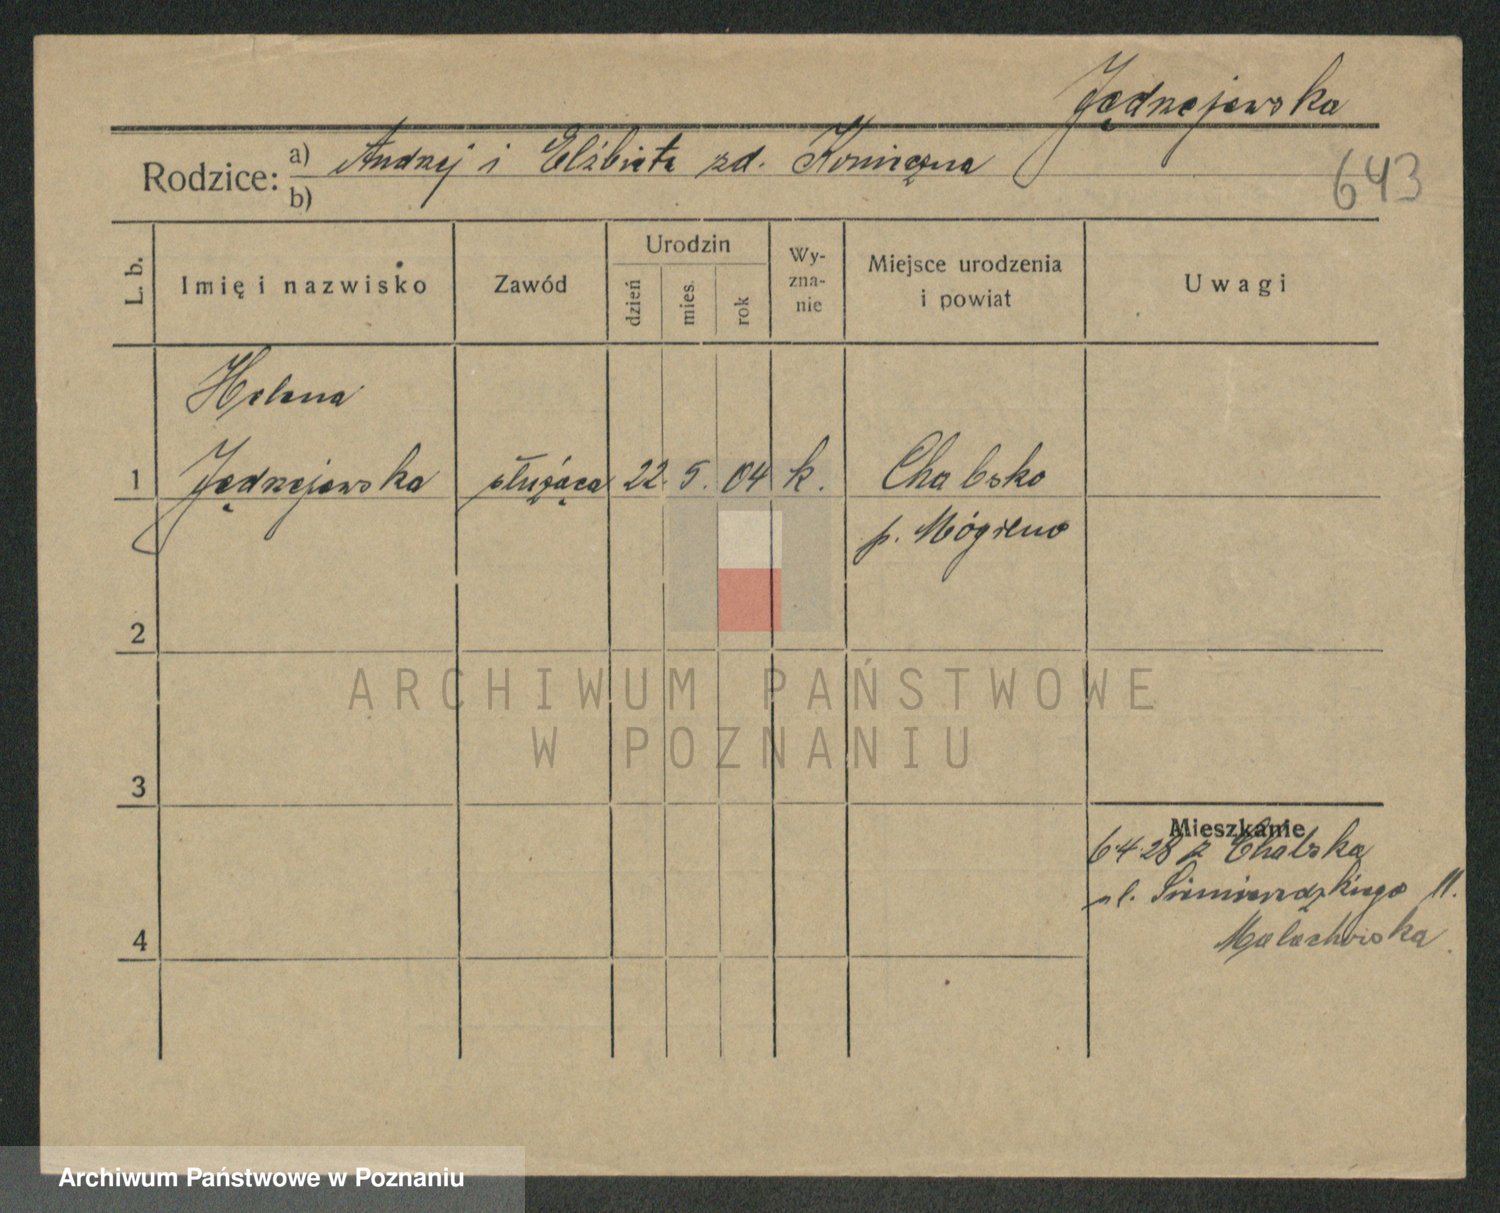 Jędrzejewska
Rodzice: a) Andrzej i Elżbieta zd. Konieczna
b)
643
L. b.
Imię i nazwisko
Zawód
Urodzin
dzień
mies.
rok
Wy-
zna-
nie
Miejsce urodzenia
i powiat
Uwagi
Helena
1 Jędrzejewska służąca 22. 5. 04 k. Chabsko
p. Mógilno
2
3
4
Mieszkanie
6.4.28 z Chabska
ul. Siemiradzkiego 11.
Malachowska
ARCHIWUM PAŃSTWOWE
W POZNANIU
Archiwum Państwowe w Poznaniu